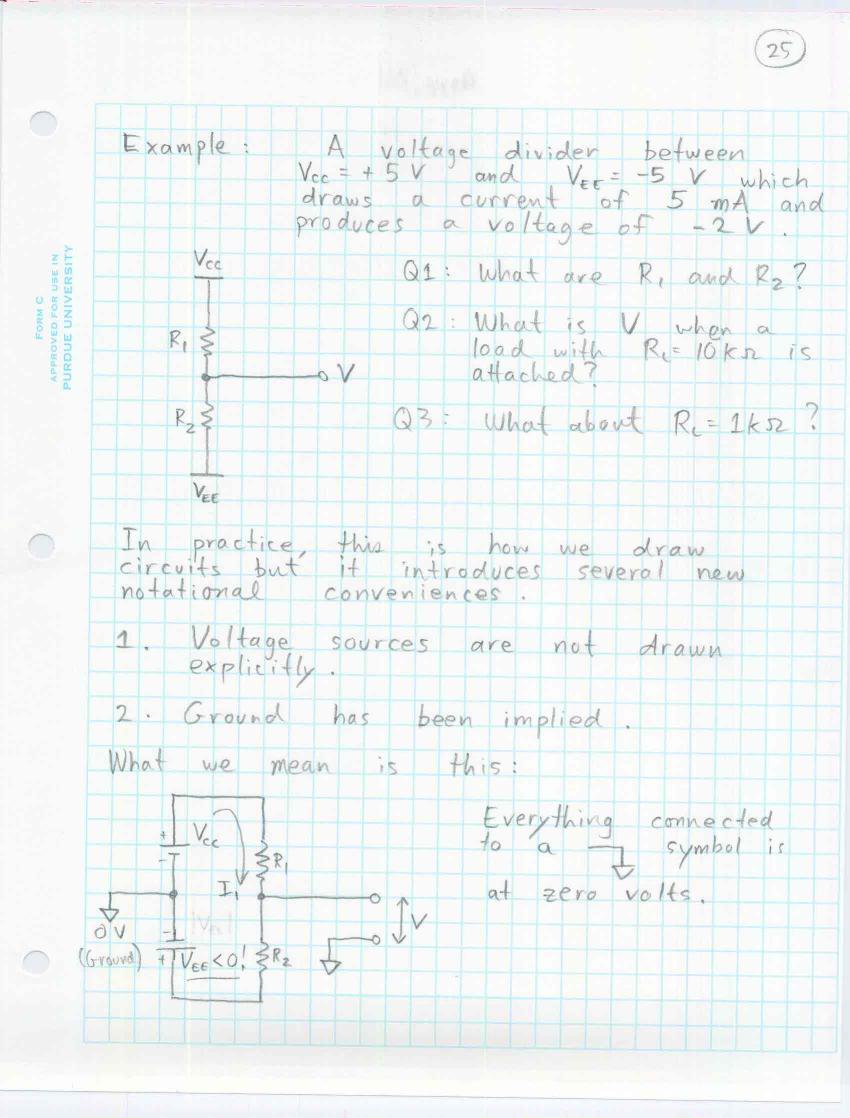 25
Example: A voltage divider between
Vcc = +5 V and VEE = -5 V which
draws a current of 5 mA and
produces a voltage of -2 V.
FORM C
APPROVED FOR USE IN
PURDUE UNIVERSITY
Vcc
R1
V
R2
VEE
Q1: What are R1 and R2?
Q2: What is V when a
load with RL = 10 kΩ is
attached?
Q3: What about RL = 1 kΩ ?
In practice, this is how we draw
circuits but it introduces several new
notational conveniences.
1. Voltage sources are not drawn
explicitly.
2. Ground has been implied.
What we mean is this:
+ Vcc
-
R1
I1
0 V
(Ground)
-
+ VEE < 0!
R2
V
Everything connected
to a symbol is
at zero volts.